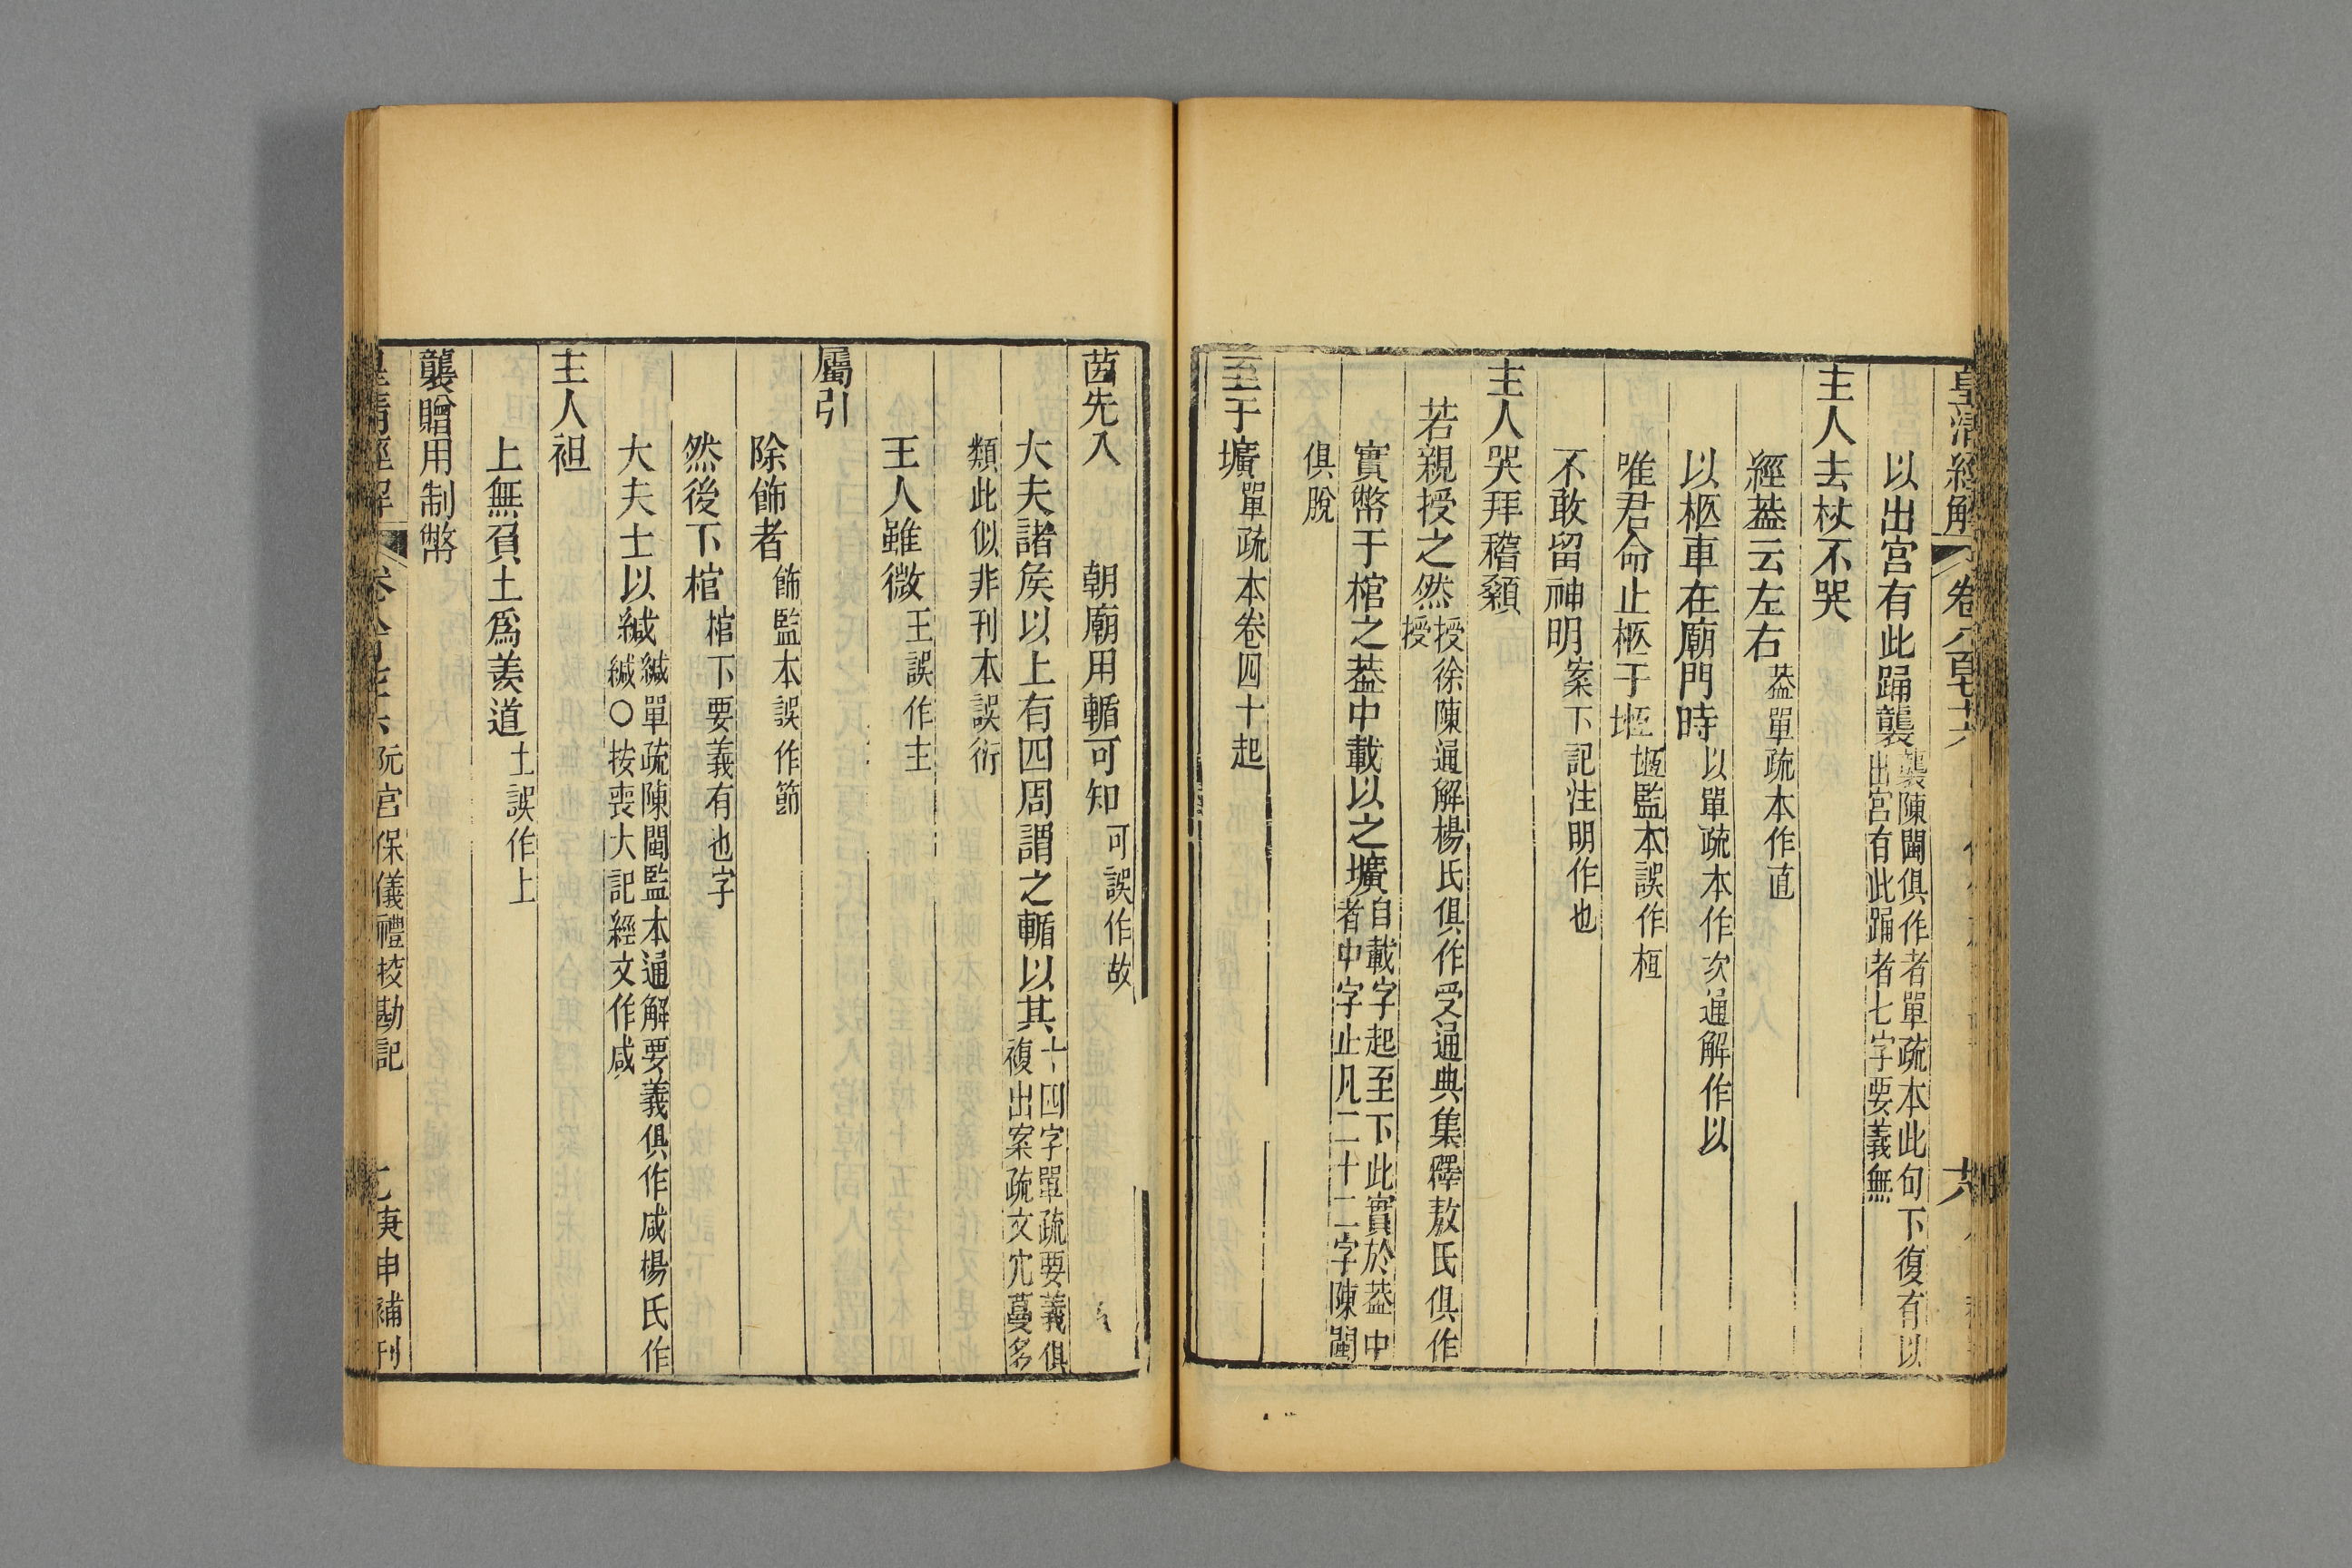 皇清經解 卷八百七十六 六
以出宮有此踊襲襲陳閩俱作者單疏本此句下復有以
出宮有此踊者七字要義無
主人去杖不哭
經葢云左右葢單疏本作直
以柩車在廟門時以單疏本作次通解作以
唯君命止柩于堩堩監本誤作桓
不敢留神明案下記注明作也
主人哭拜稽顙
若親授之然授徐陳通解楊氏俱作受通典集釋敖氏俱作
授
實幣于棺之葢中載以之壙自載字起至下此實於葢中
者中字止凡二十二字陳閩
俱脫
至于壙單疏本卷四十起
茵先入
朝廟用輴可知可誤作故
大夫諸矦以上有四周謂之輴以其十四字單疏要義俱
複出案疏文冗蔓多
類此似非刊本誤衍
王人雖微王誤作主
屬引
除飾者飾監本誤作節
然後下棺棺下要義有也字
大夫士以緘緘單疏陳閩監本通解要義俱作咸楊氏作
緘○按喪大記經文作咸
主人袒
上無負土爲羨道土誤作上
襲贈用制幣
皇清經解 卷八百七十六 阮宮保儀禮校勘記 七 庚申補刊